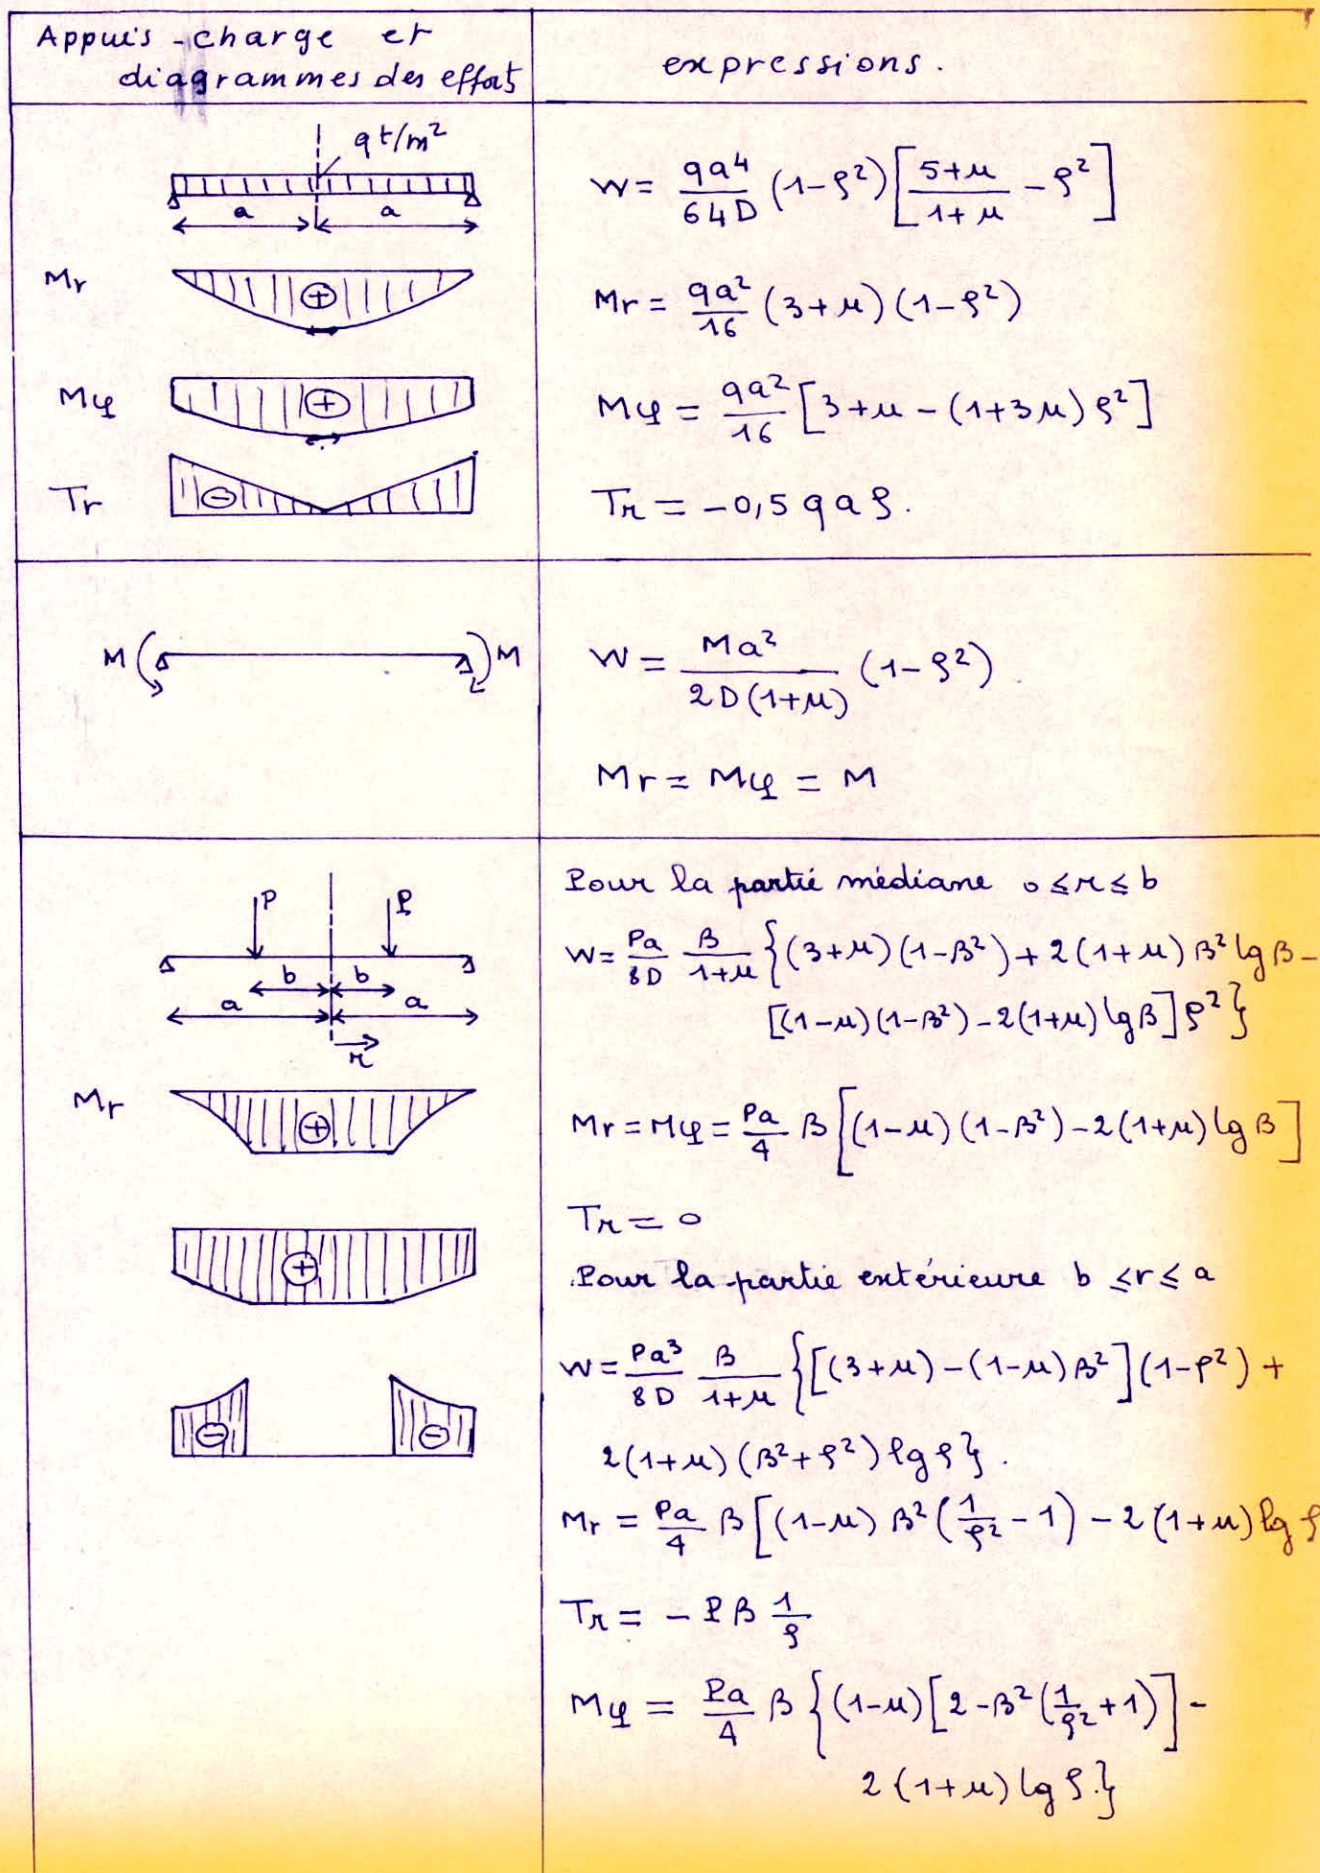 Appuis - charge et
diagrammes des effort
expressions.
q t/m²
a a
Mr
Mφ
Tr
W = qa⁴/64D (1-ρ²) [5+μ/1+μ - ρ²]
Mr = qa²/16 (3+μ)(1-ρ²)
Mφ = qa²/16 [3+μ - (1+3μ)ρ²]
Tr = -0,5 q a ρ.
M M
W = Ma²/2D(1+μ) (1-ρ²)
Mr = Mφ = M
P P
b b
a a
r
Mr
Pour la partie médiane 0 ≤ r ≤ b
W = Pa/8D β/1+μ {(3+μ)(1-β²) + 2(1+μ) β² lg β -
[(1-μ)(1-β²) - 2(1+μ) lg β] ρ²}
Mr = Mφ = Pa/4 β [(1-μ)(1-β²) - 2(1+μ) lg β]
Tr = 0
Pour la partie extérieure b ≤ r ≤ a
W = Pa³/8D β/1+μ {[(3+μ) - (1-μ)β²](1-ρ²) +
2(1+μ)(β²+ρ²) lg ρ}.
Mr = Pa/4 β [(1-μ) β² (1/ρ² - 1) - 2(1+μ) lg ρ
Tr = - P β 1/ρ
Mφ = Pa/4 β {(1-μ)[2 - β² (1/ρ² + 1)] -
2(1+μ) lg ρ.}